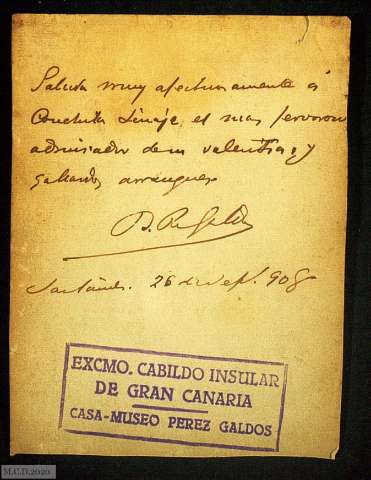 Saluda muy afectuosamente á
Conchita Linaje, el mas fervoroso
admirador de su valentia, y
gallardos arranques
B. Pz Galdós
Santander. 26 de Sept. 908
EXCMO. CABILDO INSULAR
DE GRAN CANARIA
CASA-MUSEO PEREZ GALDOS
M.C.D.2020